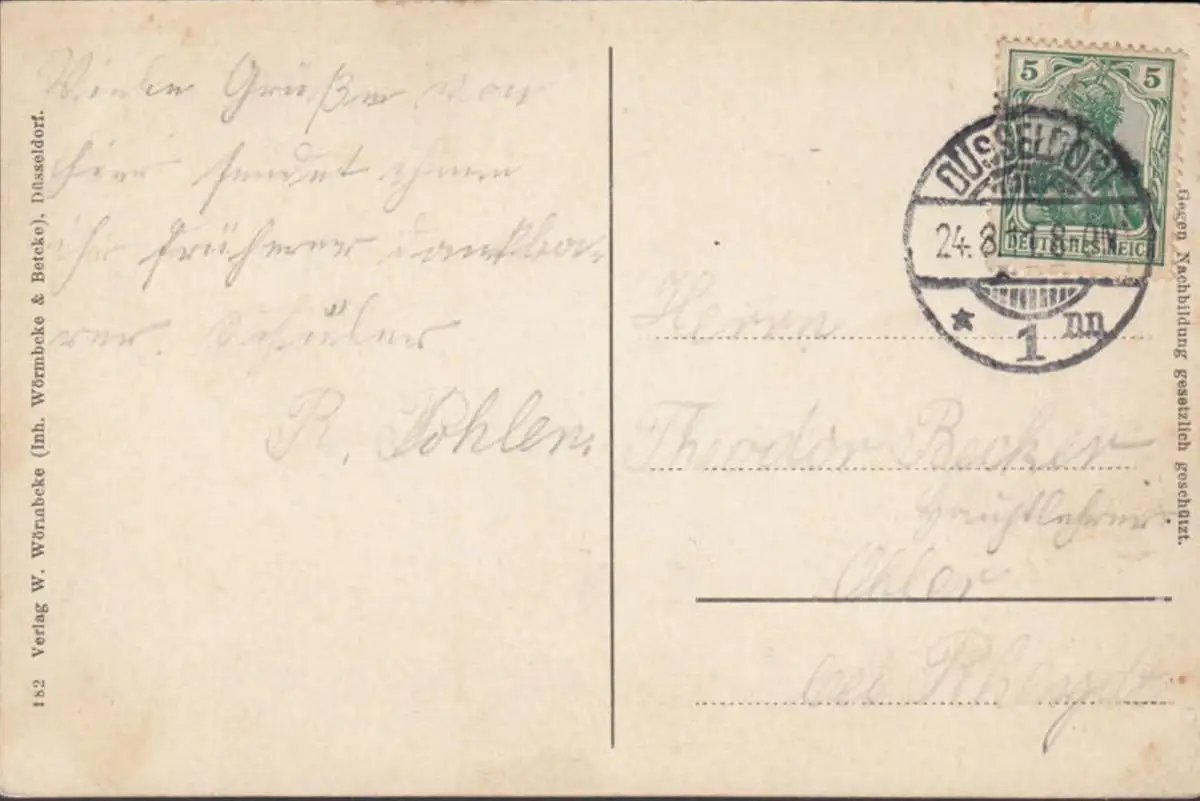 182 Verlag W. Wörmbcke (Inh. Wörmbcke & Betcke), Düsseldorf.
Viele Grüße von
hier sendet ihnen
ihr früherer dankba-
rer. Schüler
R. Kohlen.
5 5
DEUTSCHES REICH
DÜSSELDORF
24.8.11.8-9N.
* 1 nn
Herrn
Theodor Becker
Hauptlehrer
Ohler
bei Rheydt
Gegen Nachbildung gesetzlich geschützt.